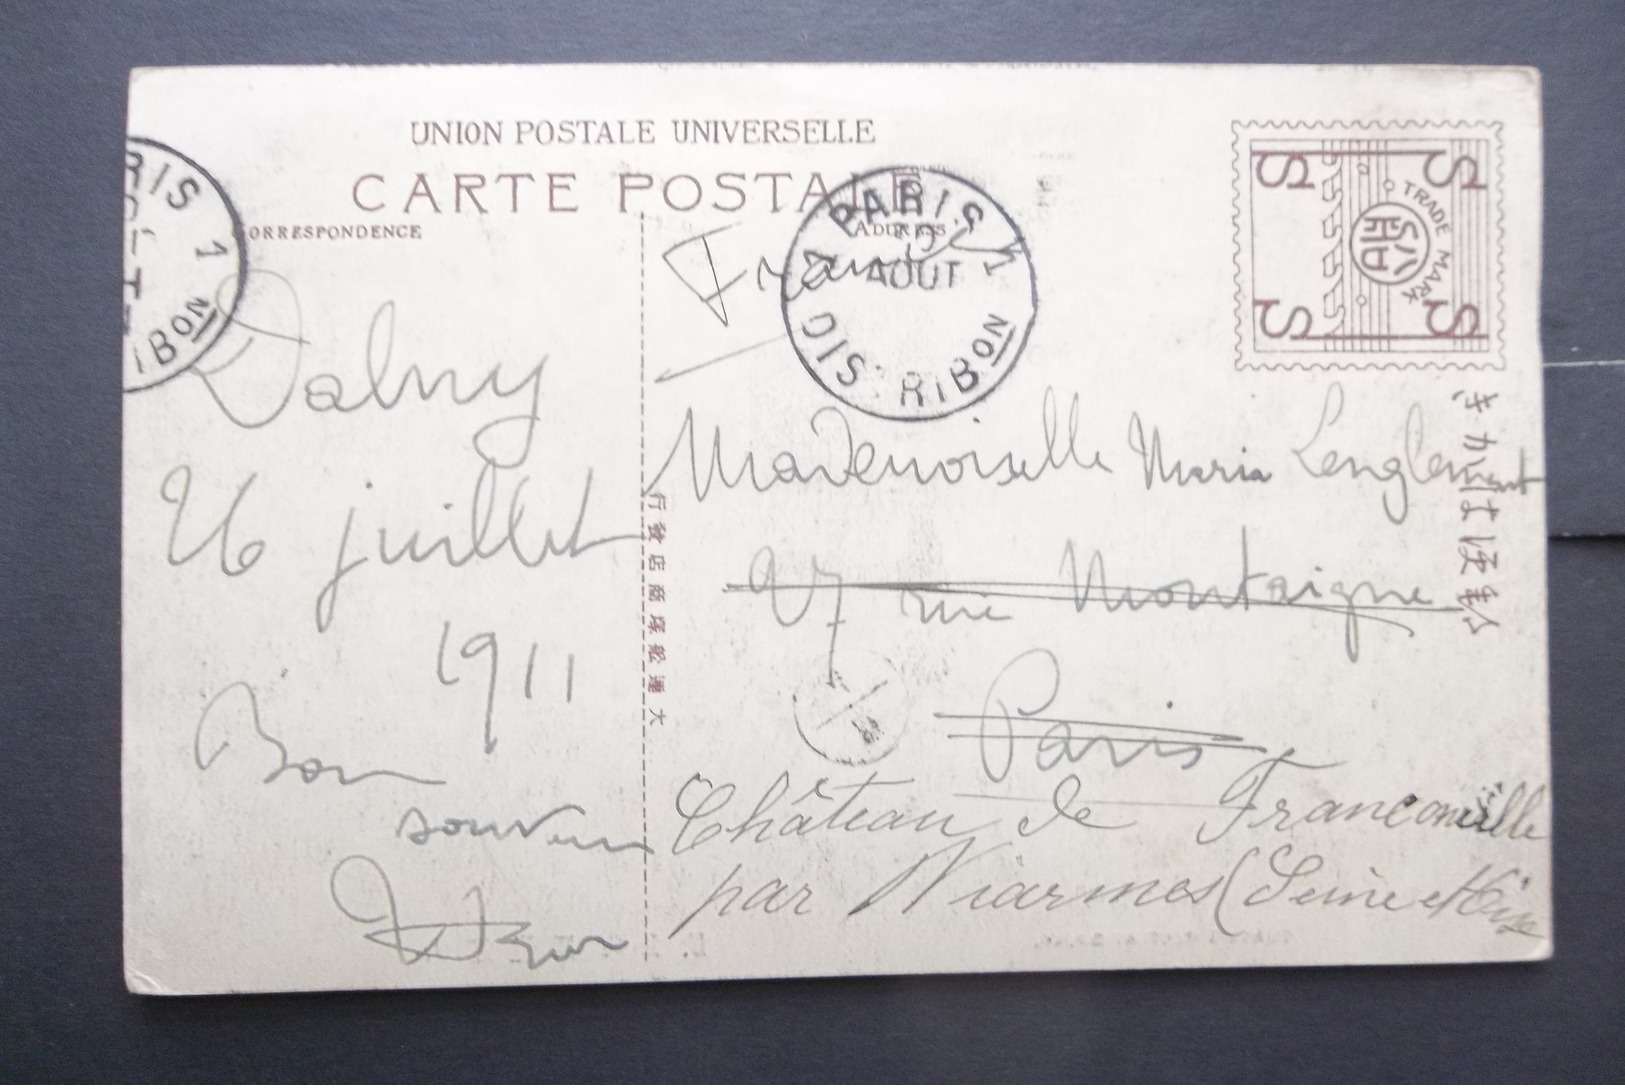 UNION POSTALE UNIVERSELLE
CARTE POSTALE
CORRESPONDENCE
ADDRESS
PARIS 1
DISTRIBON
PARIS 1
AOUT
DISTRIBON
TRADE MARK
きがは便郵
大連舩塚商店發行
Dalny
26 juillet
1911
Bon
souvenir
Mademoiselle Maria Lenglemant
27 rue Montaigne
Paris
Château de Franconville
par Viarmes (Seine et Oise